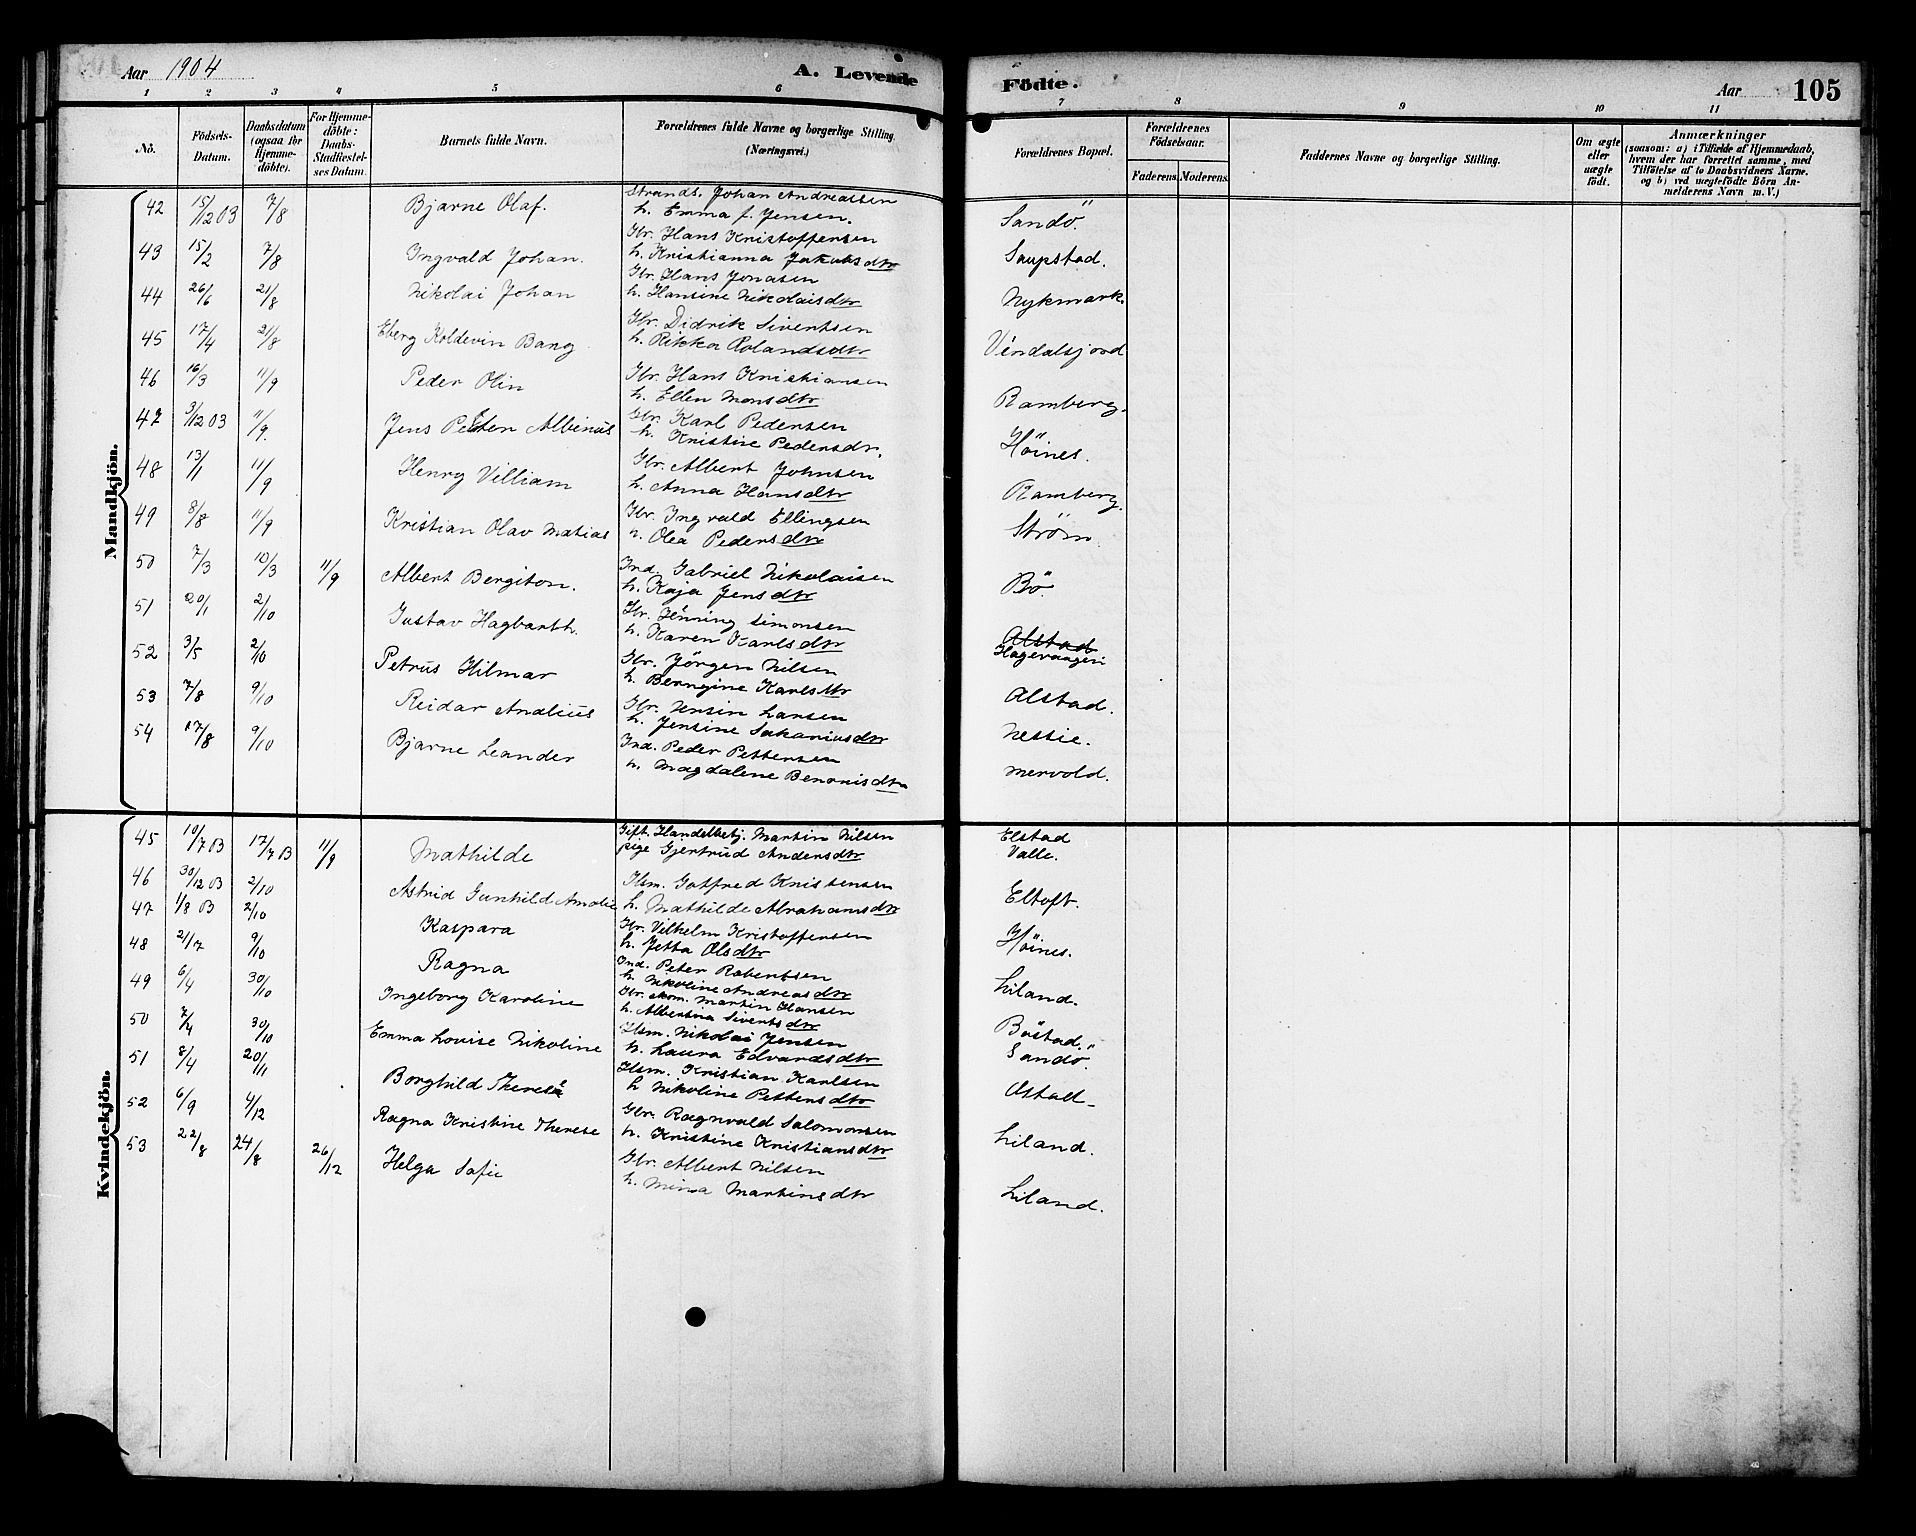 Aar 1904
A. Levende
Födte.
Aar
105
1 2 3 4 5 6 7 8 9 10 11
No.
Födsels-Datum.
Daabsdatum (ogsaa for Hjemme-döbte).
For Hjemme-döbte: Daabs-Stadfæstel-ses Datum.
Barnets fulde Navn.
Forældrenes fulde Navne og borgerlige Stilling. (Næringsvei.)
Forældrenes Bopæl.
Forældrenes Födselsaar.
Faderens. Moderens.
Faddernes Navne og borgerlige Stilling.
Om ægte eller uægte födt.
Anmærkninger (saasom: a) i Tilfælde af Hjemmedaab, hvem der har forrettet samme, med Tilföielse af to Daabsvidners Navne. og b) ved uægtefödte Börn An-melderens Navn m. V.)
Mandkjön.
42 15/12 03 7/8 Bjarne Olaf. Strands. Johan Andreassen
h. Emma f. Jensen. Sandö.
43 15/2 7/8 Ingvald Johan. Gbr. Hans Kristoffersen
h. Kristianna Jakobsdtr Saupstad.
44 26/6 21/8 Nikolai Johan Gbr. Hans Jonasen
h. Hansine Nikolaisdtr Nykmark.
45 17/4 21/8 Eberg Koldevin Bang Gbr. Didrik Sivertsen
h. Rikka Rolandsdtr Vendalsjord
46 16/3 11/9 Peder Olin Gbr. Hans Kristiansen
h. Ellen Monsdtr Ramberg.
47 3/12 03 11/9. Jens Petter Albinus Gbr. Karl Pedersen
h. Kristine Pedersdr. Höines.
48 13/1 11/9 Henry Villiam Gbr. Albert Johnsen
h. Anna Hansdtr Ramberg.
49 8/8 11/9 Kristian Olav Matias Gbr. Ingvald Ellingsen
h. Olea Pedersdtr Ström
50 7/3 10/3 11/9 Albert Bergiton. Ind. Gabriel Nikolaisen
h. Kaja Jensdtr Bö.
51 20/1 2/10 Gustav Hagbarth. Gbr. Henning Simonsen
h. Karen Karlsdtr Alstad
Hagevaagen
52 3/5 2/10 Petrus Hilmar Gbr. Jörgen Nilsen
h. Berngine Karlsdtr Alstad.
53 7/8 9/10 Reidar Analius Gbr. Jensin Larsen
h. Jensine Sakariasdtr Nessie.
54 17/8 9/10 Bjarne Leander Ind. Peder Pettersen
h. Magdalene Benonisdtr Mervold.
Kvindekjön.
45 10/7 03 17/7 03 11/9 Mathilde Gift. Handelbetj. Martin Nilsen Elstad
pige Gjertrud Andersdtr Valle.
46 30/12 03 2/10 Astrid Gunhild Amalie Hsm. Gotfred Kristensen
h. Mathilde Abrahamsdtr Eltoft.
47 1/8 03 2/10 Kaspara Gbr. Vilhelm Kristoffersen
h. Jetta Olsdtr Höines.
48 21/7 9/10 Ragna Ind. Peter Robertsen
h. Nikoline Andreasdtr Liland.
49 6/4 30/10 Ingeborg Karoline Gbr. skom. Martin Hansen
h. Albertina Sivertsdtr Böstad.
50 7/4 30/10 Emma Lovise Nikoline Hsm. Nikolai Jensen
h. Laura Edvardsdtr Sandö.
51 8/4 20/11 Borghild Theresia Hsm. Kristian Karlsen
h Nikoline Pettersdtr Alstad
52 6/9 4/12 Ragna Kristine Therese Gbr. Ragnvald Salomonsen
h. Kristine Kristiansdtr Liland.
53 22/8 24/8 26/12 Helga Sofie Gbr. Albert Nilsen
h. Mina Martinsdtr Liland.